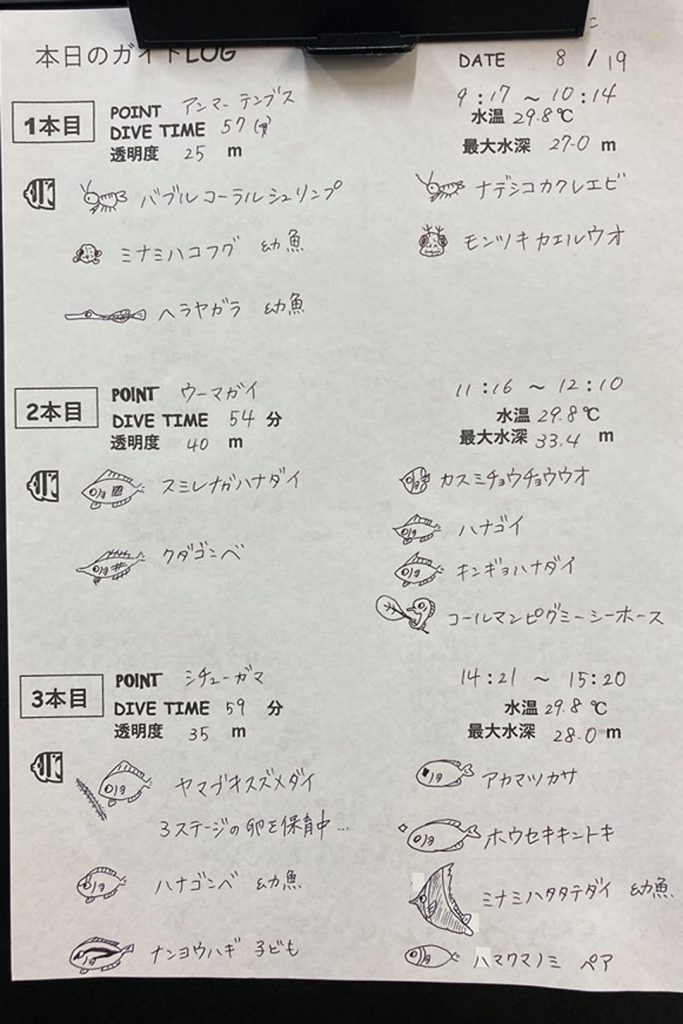 本日のガイドLOG
DATE 8/19
1本目
POINT アンマーテンプス
DIVE TIME 57分
透明度 25 m
9:17 ~ 10:14
水温 29.8℃
最大水深 27.0 m
バブルコーラルシュリンプ
ナデシコカクレエビ
ミナミハコフグ 幼魚
モンツキカエルウオ
ヘラヤガラ 幼魚
2本目
POINT ウーマガイ
DIVE TIME 54 分
透明度 40 m
11:16 ~ 12:10
水温 29.8℃
最大水深 33.4 m
スミレナガハナダイ
カスミチョウチョウウオ
ハナゴイ
クダゴンベ
キンギョハナダイ
コールマンピグミーシーホース
3本目
POINT シチューガマ
DIVE TIME 59 分
透明度 35 m
14:21 ~ 15:20
水温 29.8℃
最大水深 28.0 m
ヤマブキスズメダイ
3ステージの卵を保育中…
アカマツカサ
ホウセキキントキ
ハナゴンベ 幼魚
ミナミハタタテダイ 幼魚
ナンヨウハギ 子ども
ハマクマノミ ペア